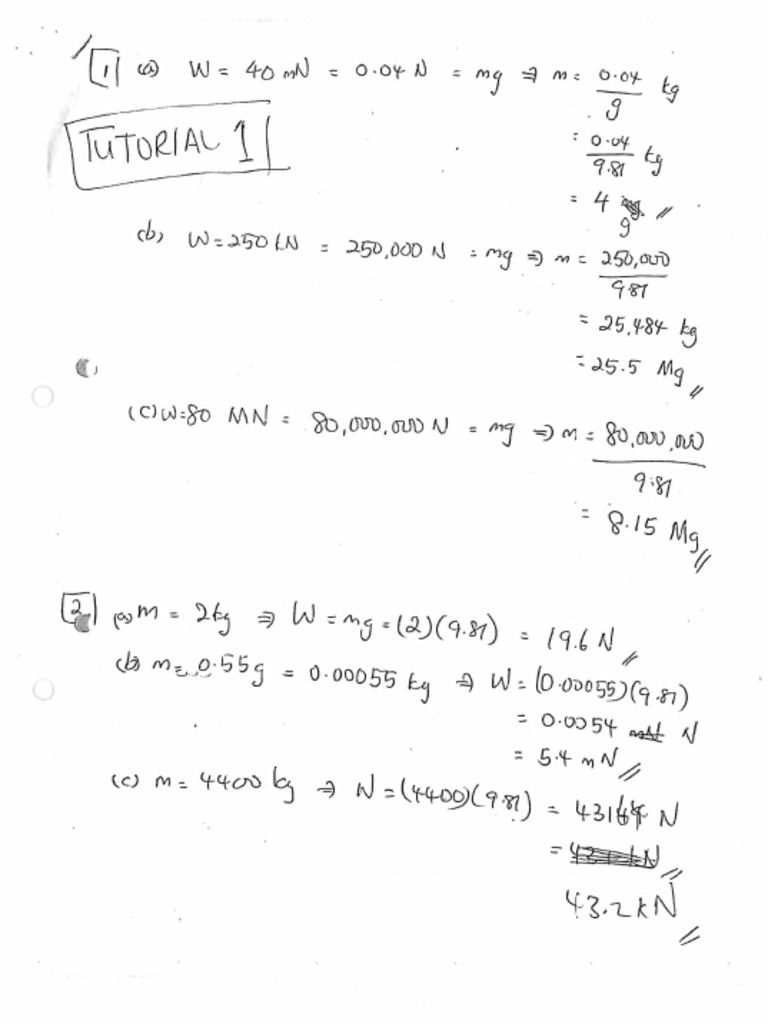 1 (a) W = 40 mN = 0.04 N = mg ⇒ m = 0.04/g kg
TUTORIAL 1
= 0.04/9.81 kg
= 4 g
(b) W = 250 kN = 250,000 N = mg ⇒ m = 250,000/9.81
= 25,484 kg
= 25.5 Mg
(c) W = 80 MN = 80,000,000 N = mg ⇒ m = 80,000,000/9.81
= 8.15 Mg
2 (a) m = 2kg ⇒ W = mg = (2)(9.81) = 19.6 N
(b) m = 0.55g = 0.00055 kg ⇒ W = (0.00055)(9.81)
= 0.0054 N
= 5.4 mN
(c) m = 4400 kg ⇒ W = (4400)(9.81) = 43164 N
=
43.2 kN